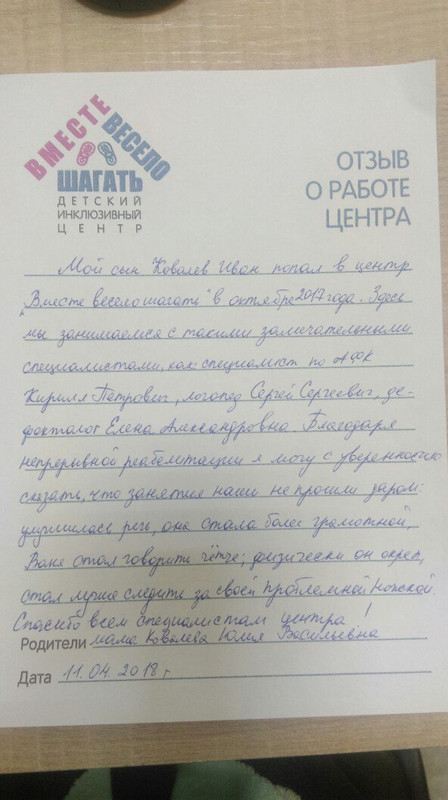 ВМЕСТЕ
ВЕСЕЛО
ШАГАТЬ
ДЕТСКИЙ
ИНКЛЮЗИВНЫЙ
ЦЕНТР
ОТЗЫВ
О РАБОТЕ
ЦЕНТРА
Мой сын Ковалев Иван попал в центр
„Вместе весело шагать" в октябре 2017 года. Здесь
мы занимаемся с такими замечательными
специалистами, как специалист по АФК
Кирилл Петрович, логопед Сергей Сергеевич, де-
фектолог Елена Александровна. Благодаря
непрерывной реабилитации я могу с уверенностью
сказать, что занятия наши не прошли даром:
улучшилась речь, она стала более грамотной,
Ваня стал говорить чётче; физически он окреп,
стал лучше следить за своей проблемной ножкой.
Спасибо всем специалистам центра!
Родители мама Ковалева Юлия Васильевна
Дата 11.04.2018 г